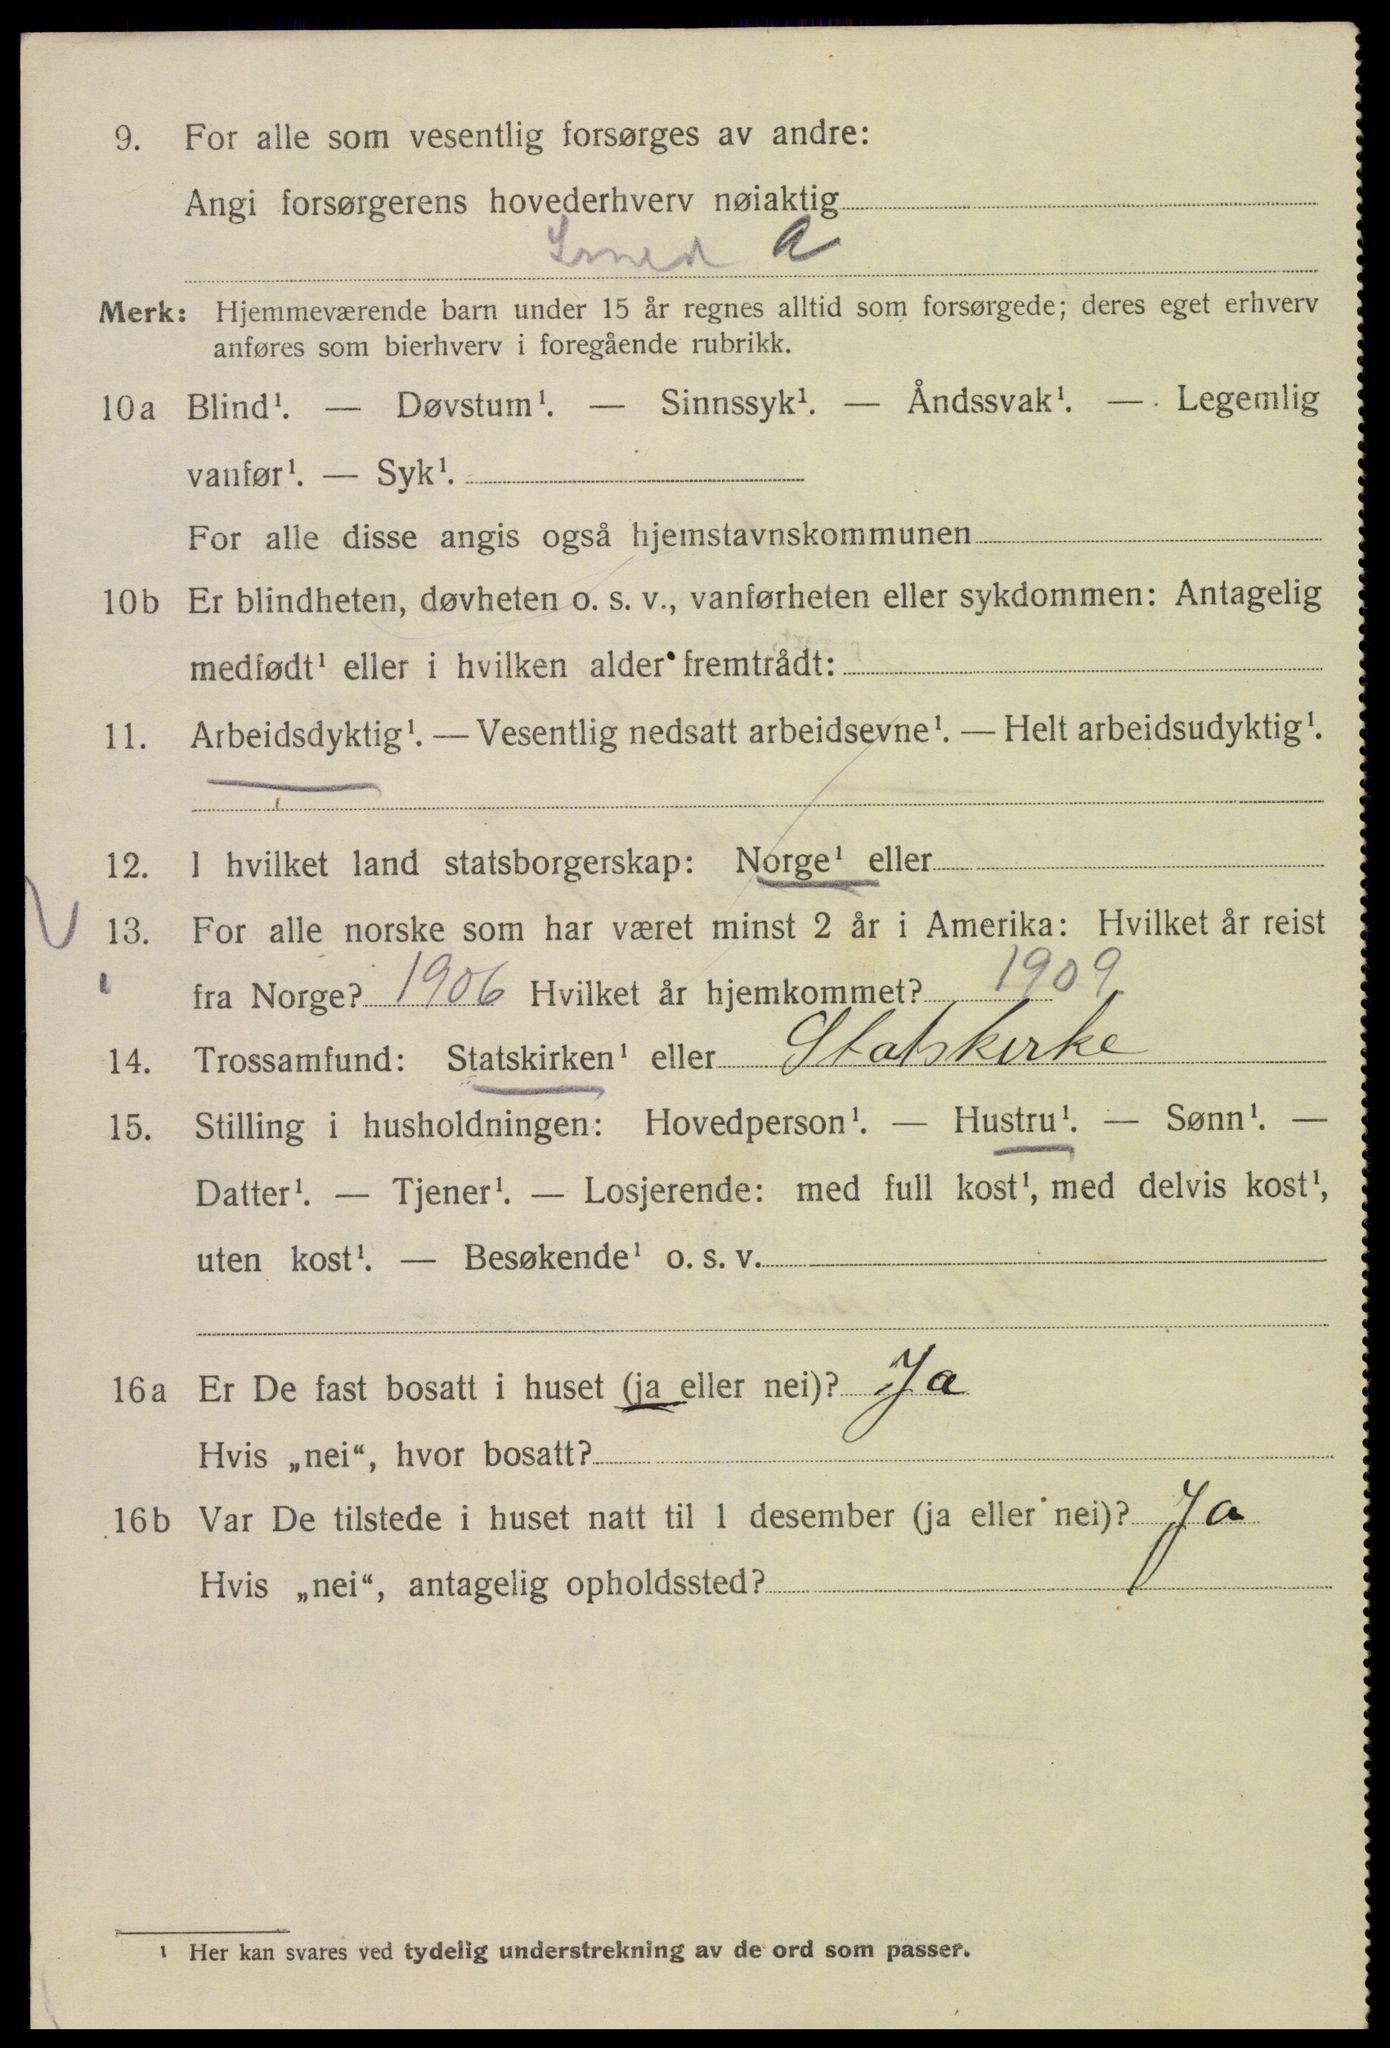 9. For alle som vesentlig forsørges av andre:
Angi forsørgerens hovederhverv nøiaktig
Smed a
Merk: Hjemmeværende barn under 15 år regnes alltid som forsørgede; deres eget erhverv
anføres som bierhverv i foregående rubrikk.
10a Blind¹. — Døvstum¹. — Sinnssyk¹. — Åndssvak¹. — Legemlig
vanfør¹. — Syk¹.
For alle disse angis også hjemstavnskommunen
10b Er blindheten, døvheten o. s. v., vanførheten eller sykdommen: Antagelig
medfødt¹ eller i hvilken alder fremtrådt:
11. Arbeidsdyktig¹. — Vesentlig nedsatt arbeidsevne¹. — Helt arbeidsudyktig¹.
12. I hvilket land statsborgerskap: Norge¹ eller
13. For alle norske som har været minst 2 år i Amerika: Hvilket år reist
fra Norge? 1906 Hvilket år hjemkommet? 1909
14. Trossamfund: Statskirken¹ eller Statskirke
15. Stilling i husholdningen: Hovedperson¹. — Hustru¹. — Sønn¹. —
Datter¹. — Tjener¹. — Losjerende: med full kost¹, med delvis kost¹,
uten kost¹. — Besøkende¹ o. s. v.
16a Er De fast bosatt i huset (ja eller nei)? Ja
Hvis „nei“, hvor bosatt?
16b Var De tilstede i huset natt til 1 desember (ja eller nei)? Ja
Hvis „nei“, antagelig opholdssted?
¹ Her kan svares ved tydelig understrekning av de ord som passer.